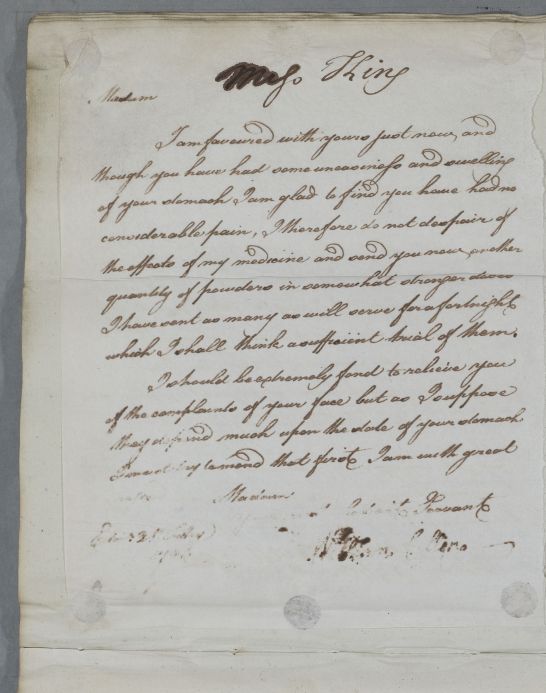 Miss King
Madam
I am favoured with yours just now, and
though you have had some uneasiness and swelling
of your stomach I am glad to find you have had no
considerable pain, I therefore do not despair of
the effects of my medicine and send you now another
quantity of powders in somewhat stronger doses
I have sent as many as will serve for a fortnight
which I shall think a sufficient trial of them.
I should be extremely fond to relieve you
of the complaints of your face but as I suppose
they depend much upon the state of your stomach
I must try to mend that first I am with great
Madam
Servant